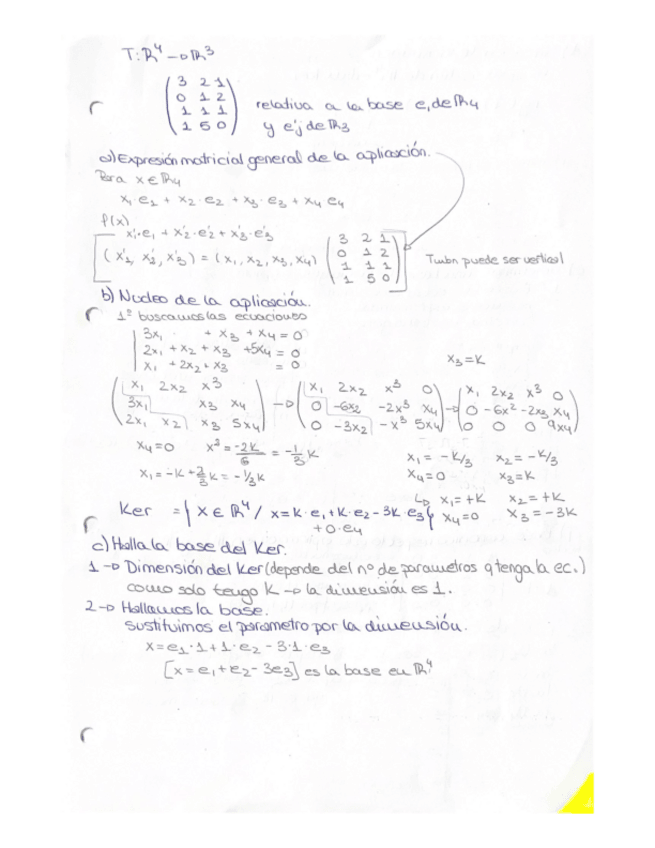 T: R⁴ → R³
( 3 2 1
0 1 2 relativa a la base e, de R4
1 1 1
1 5 0 ) y e'j de R3
a) Expresión matricial general de la aplicación.
Para x ∈ R4
x₁·e₁ + x₂·e₂ + x₃·e₃ + x₄ e₄
f(x)
x'₁·e₁ + x'₂·e'₂ + x'₃·e'₃
(x'₁, x'₂, x'₃) = (x₁, x₂, x₃, x₄) ( 3 2 1
0 1 2
1 1 1
1 5 0 ) puede ser vertical
b) Nucleo de la aplicación.
1º buscamos las ecuaciones
3x₁ + x₃ + x₄ = 0
2x₁ + x₂ + x₃ + 5x₄ = 0
x₁ + 2x₂ + x₃ = 0
x₃ = K
( x₁ 2x₂ x³ ) → ( x₁ 2x₂ x³ 0 ) → ( x₁ 2x₂ x³ 0 )
( 3x₁ x₃ x₄ ) ( 0 -6x₂ -2x³ x₄ ) ( 0 -6x² -2x₃ x₄ )
( 2x₁ x₂ x₃ 5x₄ ) ( 0 -3x₂ -x³ 5x₄ ) ( 0 0 0 9x₄ )
x₄ = 0 x² = -2K/6 = -1/3 K x₁ = -K/3 x₂ = -K/3
x₁ = -K + 2/3 K = -1/3K x₄ = 0 x₃ = K
↳ x₁ = +K x₂ = +K
Ker = { x ∈ R⁴ / x = K·e₁ + K·e₂ - 3K·e₃ } x₄ = 0 x₃ = -3K
+ 0·e₄
c) Halla la base del Ker.
1 → Dimensión del Ker (depende del nº de parametros q tenga la ec.)
como solo tengo K → la dimensión es 1.
2 → Hallamos la base.
Sustituimos el parametro por la dimensión.
x = e₁·1 + 1·e₂ - 3·1·e₃
[x = e₁ + e₂ - 3e₃] es la base en R⁴